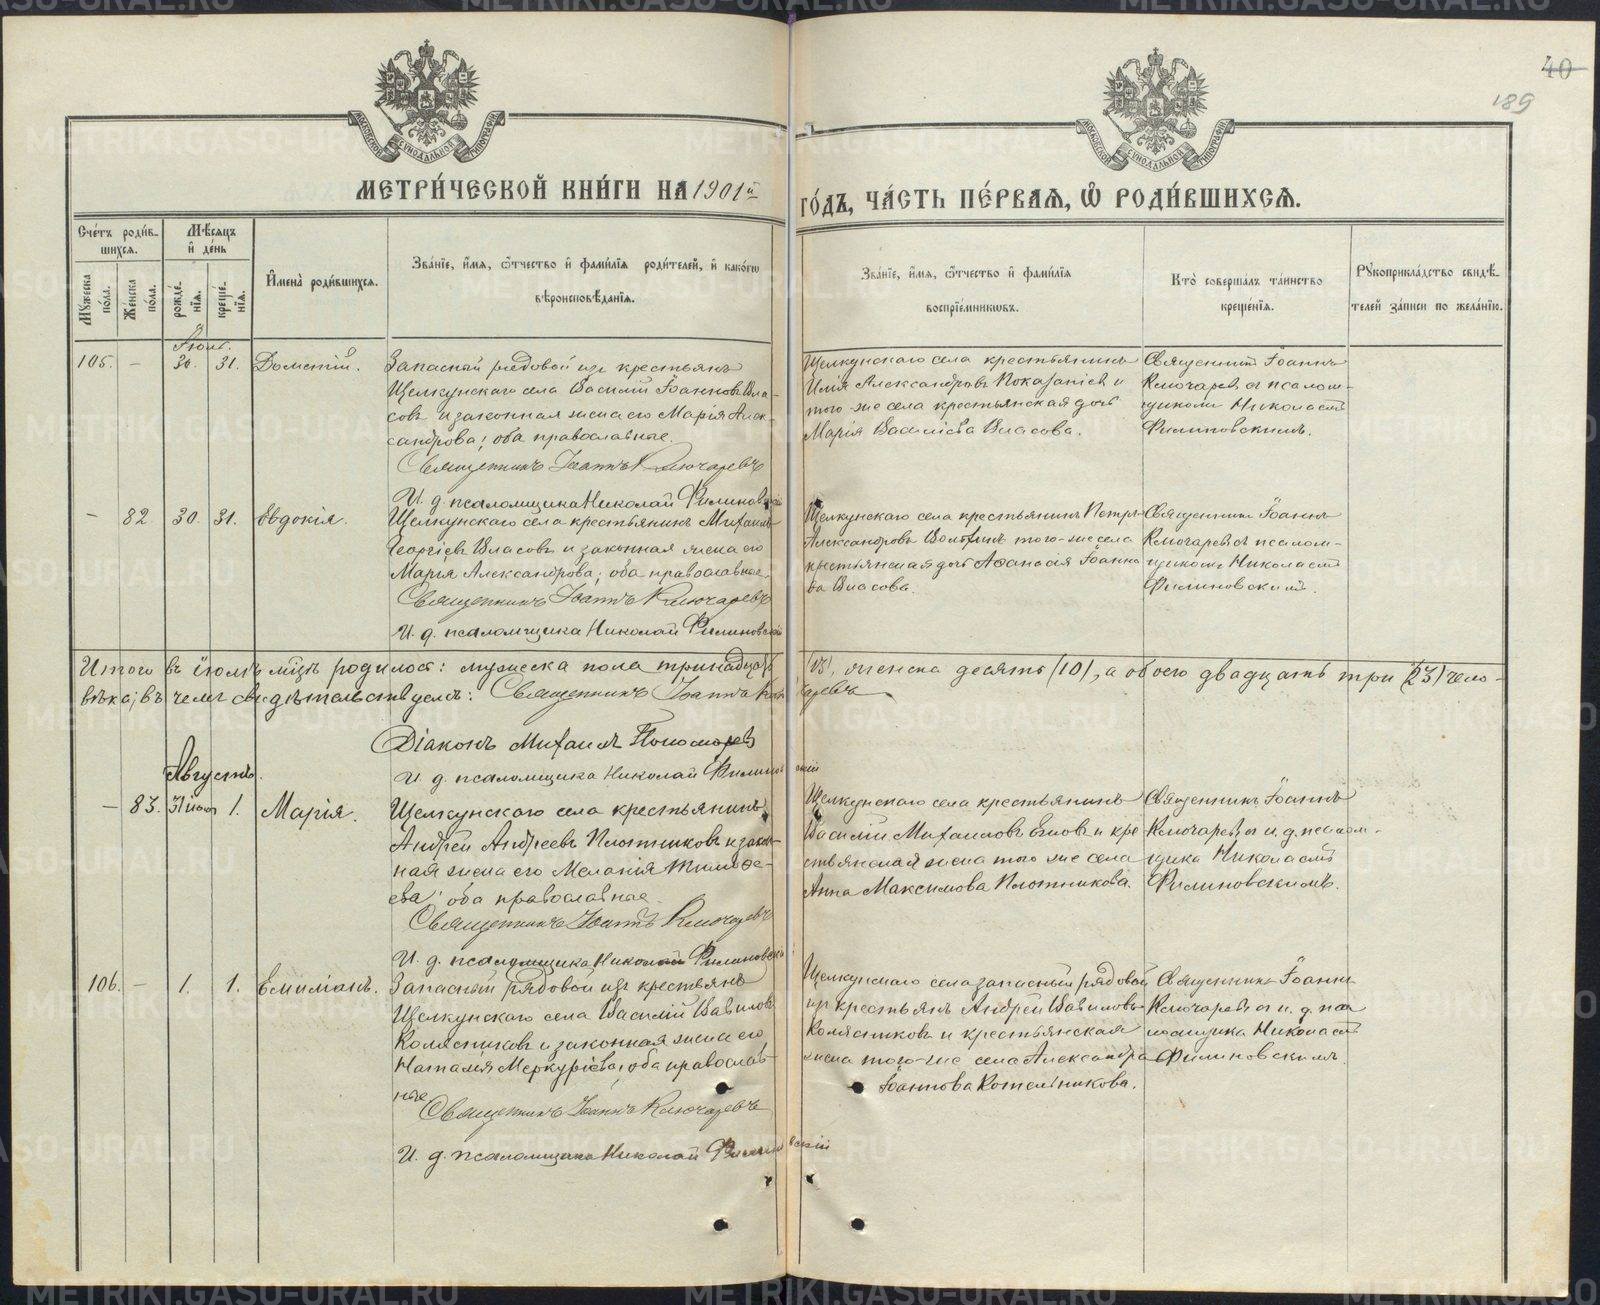 40
189
МОСКОВСКОЙ СУНОДАЛЬНОЙ ТИПОГРАФІИ
МОСКОВСКОЙ СУНОДАЛЬНОЙ ТИПОГРАФІИ
МЕТРИ́ЧЕСКОЙ КНИ́ГИ НА 1901й
ГО́ДЪ, ЧА́СТЬ ПЕ́РВАѦ, Ѡ РОДИ́ВШИХСѦ.
Сче́тъ роди́в-
шихся.
Мѣ́сяцъ
и҆ де́нь
Мꙋ́жеска по́ла.
Же́нска по́ла.
рожде́нїя.
креще́нїя.
И҆мена̀ роди́вшихся.
Зва́нїе, и҆́мя, ѻ҆́тчество и҆ фами́лїя роди́телей, и҆ како́гѡ
вѣроисповѣ́данїя.
Зва́нїе, и҆́мя, ѻ҆́тчество и҆ фами́лїя
воспрїе́мникѡвъ.
Кто̀ соверша́лъ та́инство
креще́нїя.
Рꙋкоприкла́дство свидѣ́-
телей за́писи по жела́нїю.
Іюль.
105. — 30. 31.
Запасный рядовой изъ крестьянъ
Щелкунскаго села Василій Іоанновъ Вла-
совъ и законная жена его Марія Алек-
сандрова; оба православные.
Священникъ Іоаннъ Ключаревъ
И. д. псаломщика Николай Филиновскій
Щелкунскаго села крестьянинъ
Илія Александровъ и
того-же села крестьянская дочь
Марія Василіева Власова.
Священникъ Іоаннъ
Ключаревъ съ псалом-
щикомъ Николаемъ
Филиновскимъ.
— 82 30. 31. Евдокія.
Щелкунскаго села крестьянинъ Михаилъ
Георгіевъ Власовъ и законная жена его
Марія Александрова; оба православные.
Священникъ Іоаннъ Ключаревъ
И. д. псаломщика Николай Филиновскій
Щелкунскаго села крестьянинъ Петръ
Александровъ того-же села
крестьянская дочь Аѳанасія Іоанно
ва Власова.
Священникъ Іоаннъ
Ключаревъ съ псалом-
щикомъ Николаемъ
Филиновскимъ.
Итого въ іюлѣ мѣсцѣ родилось: мужеска пола тринадцать (13), женска десять (10), а обоего двадцать три (23) чело-
вѣка; въ чемъ свидѣтельствуемъ: Священникъ Іоаннъ Ключаревъ
Діаконъ Михаилъ Пономаревъ
И. д. псаломщика Николай Филиновскій
Августъ.
— 83. 31 іюля 1. Марія.
Щелкунскаго села крестьянинъ
Андрей Андреевъ Плотниковъ и закон-
ная жена его Меланія Тимоѳе-
ева; оба православные.
Священникъ Іоаннъ Ключаревъ
И. д. псаломщика Николай Филиновскій
Щелкунскаго села крестьянинъ
Василій Михаиловъ и кре
стьянская жена того же села
Анна Максимова Плотникова.
Священникъ Іоаннъ
Ключаревъ съ и. д. псалом-
щика Николаемъ
Филиновскимъ.
106. — 1. 1. Емиліанъ.
Запасный рядовой изъ крестьянъ
Щелкунскаго села Василій Вавиловъ
Колясниковъ и законная жена его
Наталія Меркуріева; оба православ-
ные
Священникъ Іоаннъ Ключаревъ
И. д. псаломщика Николай Филиновскій
Щелкунскаго села запасный рядовой
изъ крестьянъ Андрей Вавиловъ
Колясниковъ и крестьянская
жена того-же села Александра
Іоаннова Котельникова.
Священникъ Іоаннъ
Ключаревъ съ и. д. пса
ломщика Николаемъ
Филиновскимъ.
METRIKI.GASO-URAL.RU